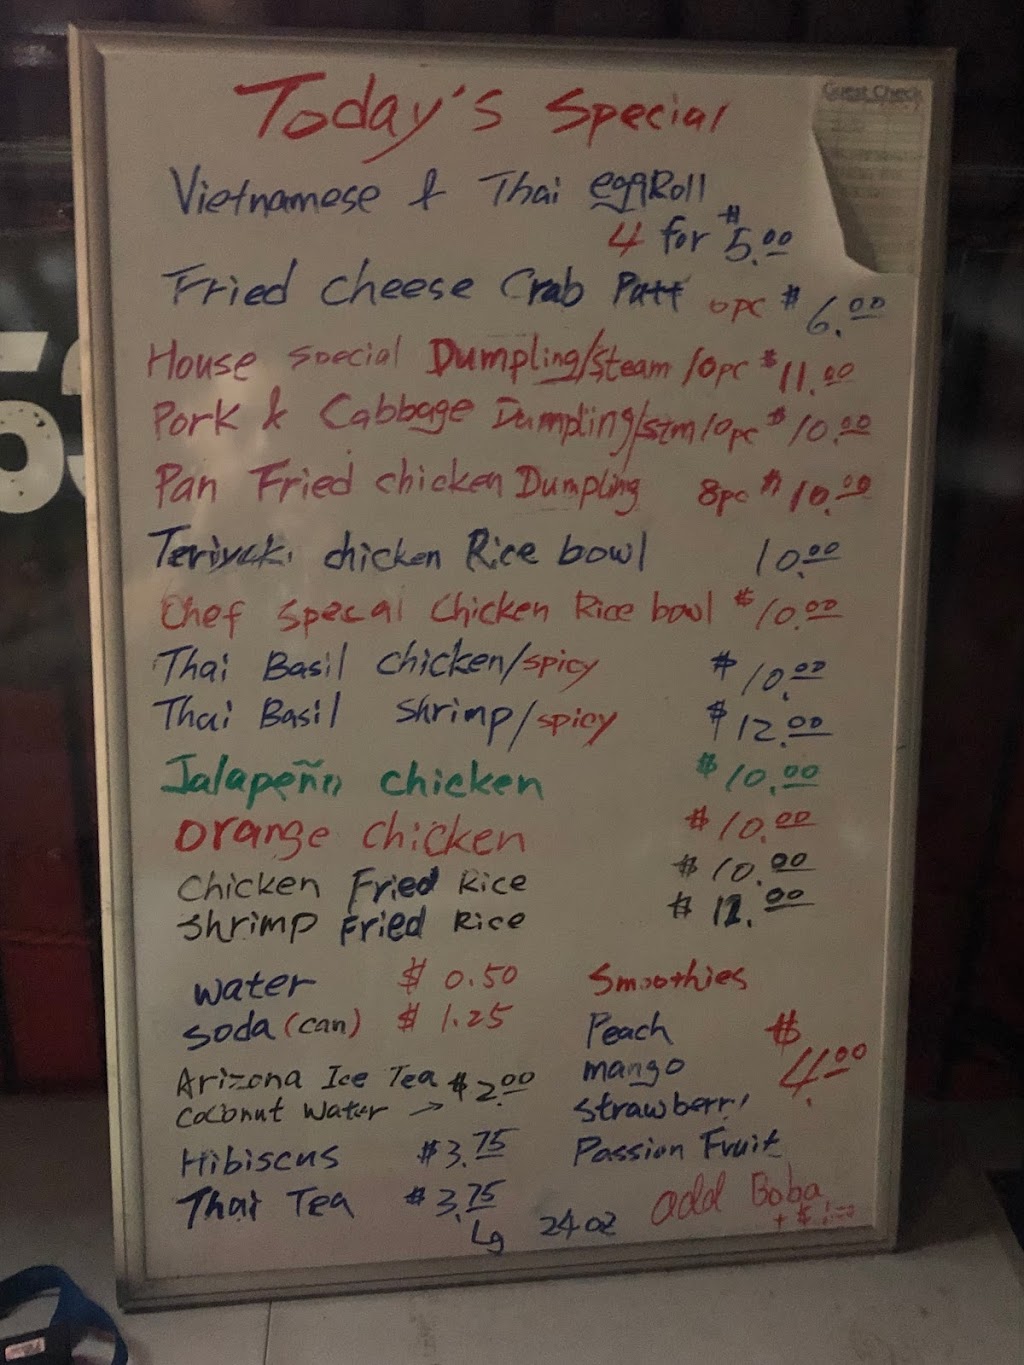 Today's Special
Guest Check
Vietnamese & Thai eggRoll
4 for $5.00
Fried cheese Crab Patt pc $6.00
House special Dumpling/steam 10pc $11.00
Pork & Cabbage Dumpling/stm 10pc $10.00
Pan Fried chicken Dumpling 8pc $10.00
Teriyaki chicken Rice bowl 10.00
Chef specal Chicken Rice bowl $10.00
Thai Basil chicken/spicy $10.00
Thai Basil shrimp/spicy $12.00
Jalapeño chicken $10.00
orange chicken $10.00
Chicken Fried Rice $10.00
shrimp Fried Rice $12.00
water $0.50
soda (can) $1.25
Arizona Ice Tea $2.00
Coconut Water →
Hibiscus $3.75
Thai Tea $3.75
Lg 24oz
Smoothies
Peach
mango
$4.00
strawberry
Passion Fruit
add Boba
+ $1.00
53